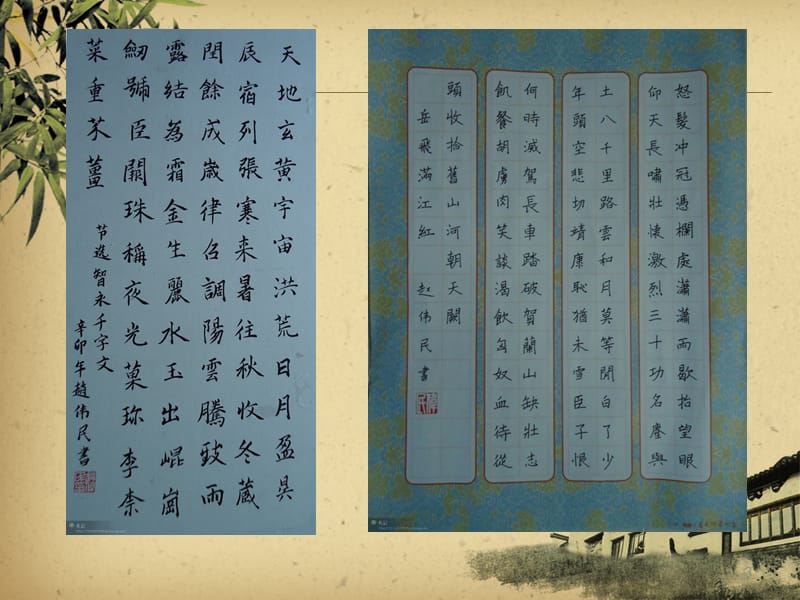 天地玄黃宇宙洪荒日月盈昃
辰宿列張寒来暑往秋收冬藏
閏餘成歲律召調陽雲騰致雨
露結為霜金生麗水玉出崐崗
劒號臣闕珠稱夜光菓珍李柰
菜重芥薑
节选智永千字文
辛卯年趙伟民書
怒髮冲冠憑欄處瀟瀟雨歇抬望眼
仰天長嘯壯懷激烈三十功名塵與
土八千里路雲和月莫等閒白了少
年頭空悲切靖康恥猶未雪臣子恨
何時滅駕長車踏破賀蘭山缺壯志
飢餐胡虜肉笑談渴飲匈奴血待從
頭收拾舊山河朝天闕
岳飛滿江紅 赵伟民書